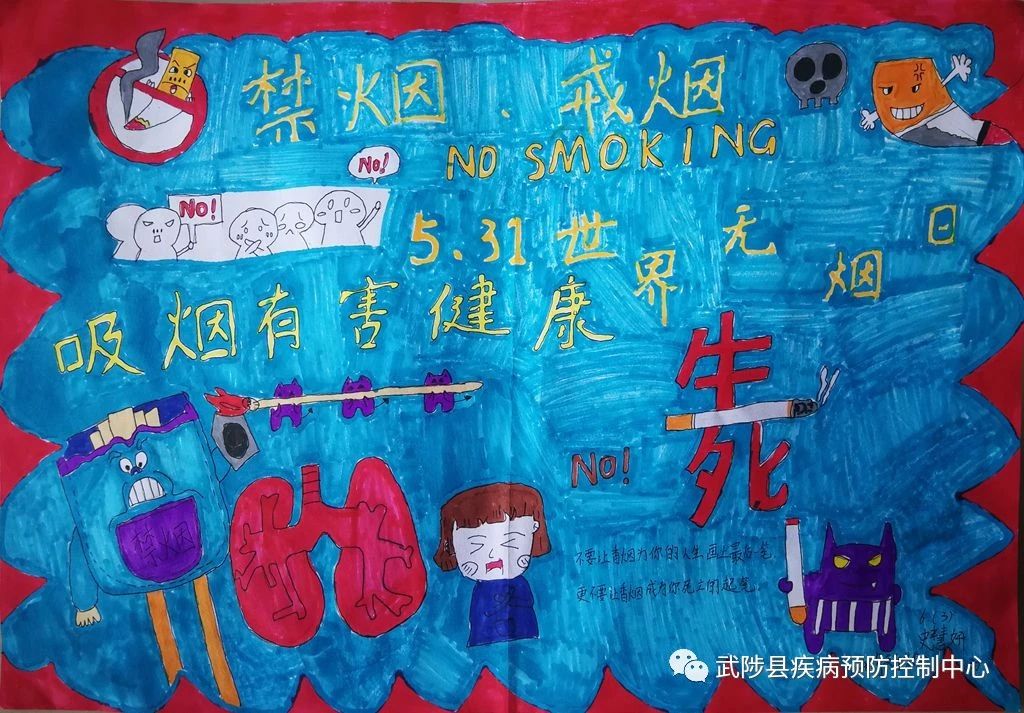 禁烟、戒烟
NO SMOKING
No!
No!
5.31世界无烟日
吸烟有害健康
生死
No!
禁烟
不要让香烟为你的人生画上最后一笔
更不要让香烟成为你死亡的起笔.
武陟县疾病预防控制中心